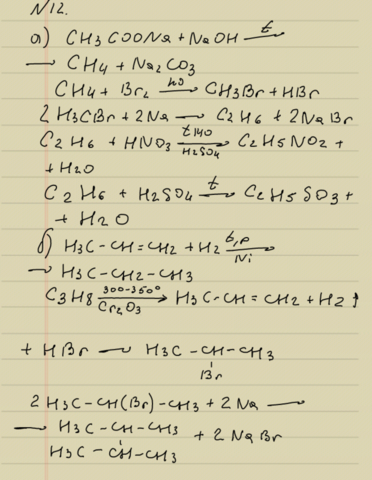 N12.
а) CH3COONa + NaOH →t
→ CH4 + Na2CO3
CH4 + Br2 →hν CH3Br + HBr
2H3CBr + 2Na → C2H6 + 2NaBr
C2H6 + HNO3 →t140 H2SO4 C2H5NO2 +
+ H2O
C2H6 + H2SO4 →t C2H5SO3 +
+ H2O
б) H3C-CH=CH2 + H2 →t,p Ni
→ H3C-CH2-CH3
C3H8 →300-350° Cr2O3 H3C-CH=CH2 + H2↑
+ HBr → H3C-CH-CH3
Br
2H3C-CH(Br)-CH3 + 2Na →
→ H3C-CH-CH3
+ 2NaBr
H3C-CH-CH3